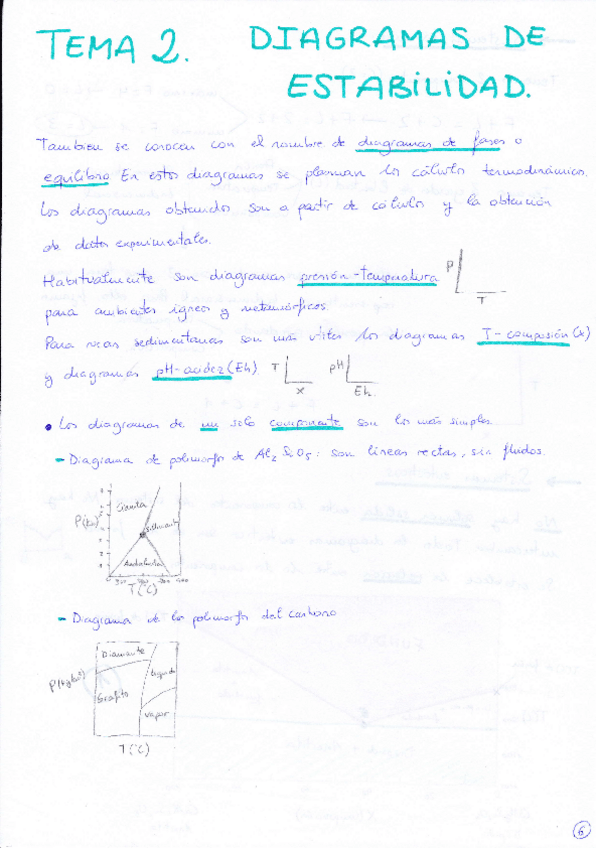 TEMA 2. DIAGRAMAS DE
ESTABILIDAD.
Tambien se conocen con el nombre de diagramas de fases o
equilibro. En estos diagramas se plasman los cálculos termodinámicos.
Los diagramas obtenidos son a partir de cálculos y la obtención
de datos experimentales.
Habitualmente son diagramas presión-temperatura
P
T
para ambientes ígneos y metamórficos.
Para rocas sedimentarias son más útiles los diagramas T-composión (x)
y diagramas pH-acidez (Eh)
T
x
pH
Eh.
• Los diagramas de un solo componente son los más simples.
- Diagrama de polimorfo de Al2SiO5: son líneas rectas, sin fluidos.
Cianita
Sillimanita
Andalucita
T(ºC)
- Diagrama de los polimorfos del carbono
Diamante
líquido
Grafito
vapor
T(ºC)
6